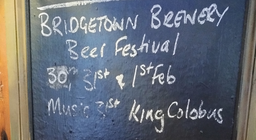 BRIDGETOWN BREWERY
Beer Festival
30th 31st & 1st Feb
Music 31st King Colobus